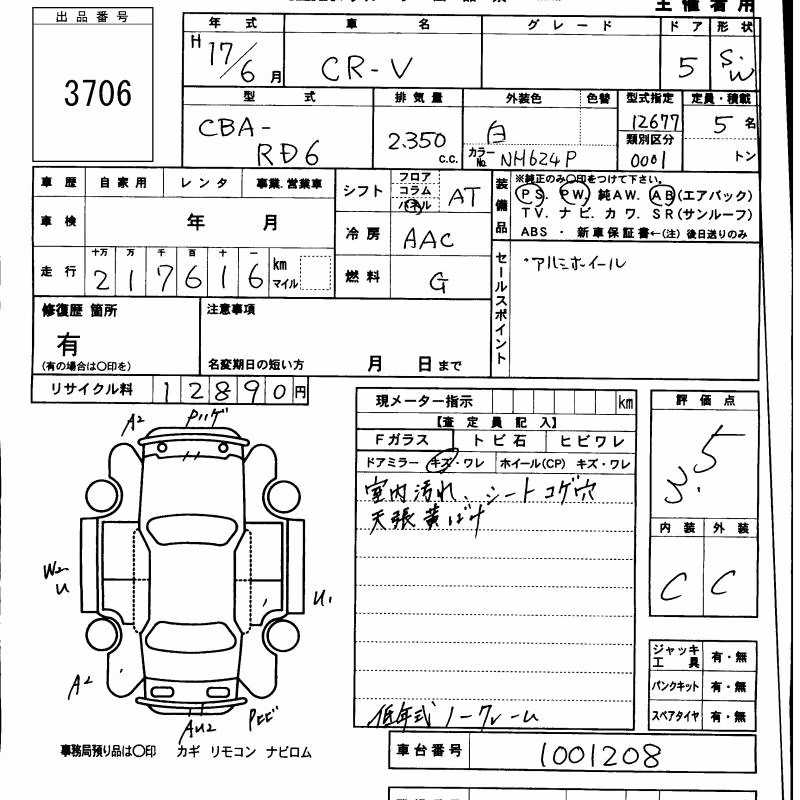 主催者用
出品番号
3706
年式
車名
グレード
ドア
形状
H 17/6 月
CR-V
5
S.W
型式
排気量
外装色
色替
型式指定
定員・積載
CBA-
RD6
2.350
c.c.
白
カラーNo. NH624P
12677
類別区分
0001
5 名
トン
車歴
自家用
レンタ
事業.営業車
シフト
フロア
コラム
パネル
AT
装備品
※純正のみ〇印をつけて下さい。
PS. PW. 純AW. AB(エアバック)
TV. ナビ. カワ. SR(サンルーフ)
ABS ・ 新車保証書←(注) 後日送りのみ
車検
年 月
冷房
AAC
走行
十万 万 千 百 十 一
2 1 7 6 1 6
km
マイル
燃料
G
セールスポイント
・アルミホイール
修復歴 箇所
有
(有の場合は〇印を)
注意事項
名変期日の短い方 月 日まで
リサイクル料
1 2 8 9 0 円
現メーター指示
km
【査定員記入】
Fガラス
トビ石
ヒビワレ
ドアミラー キズ・ワレ
ホイール(CP) キズ・ワレ
室内汚れ、シートコゲ穴
天張黄ばみ
低年式ノークレーム
評価点
3.5
内装
外装
C
C
ジャッキ
工具
有・無
パンクキット
有・無
スペアタイヤ
有・無
A2
Pハゲ
W2
U
U1
A2
AU2
Pヒビ
事務局預り品は〇印 カギ リモコン ナビロム
車台番号
1001208